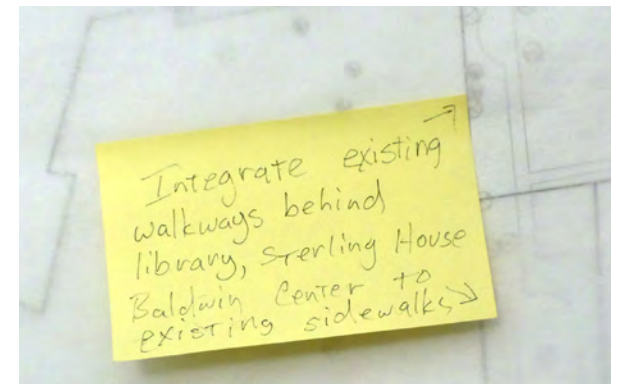 Integrate existing
walkways behind
library, Sterling House
Baldwin Center to
existing sidewalks